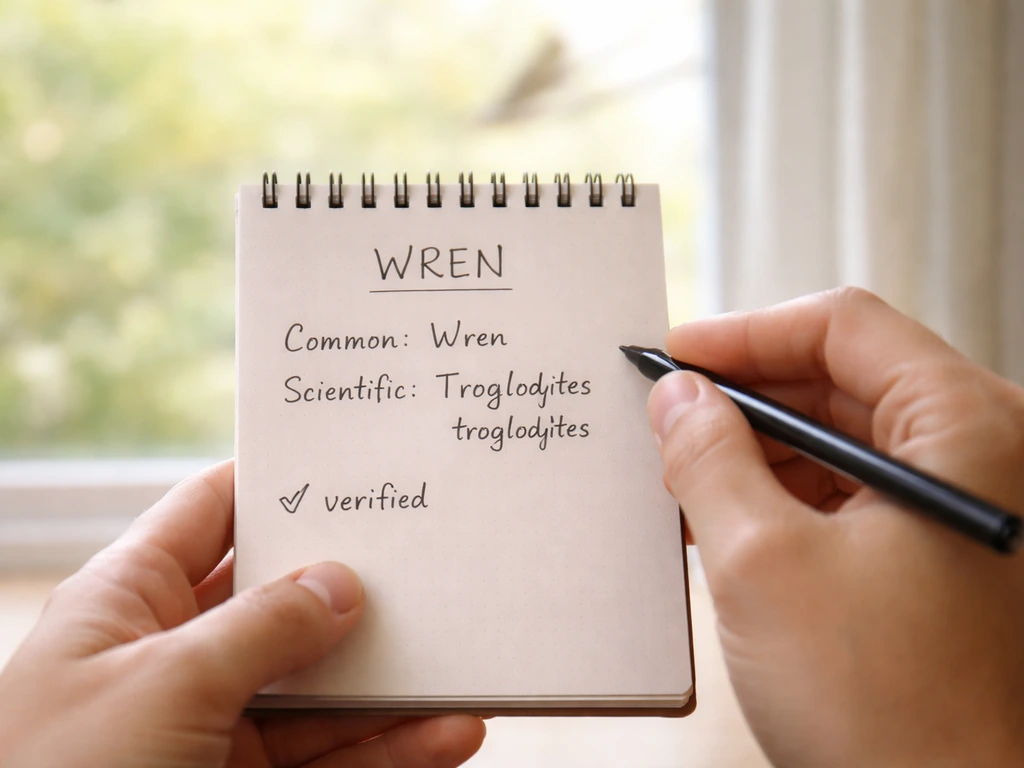 WREN
Common: Wren
Scientific: Troglodjites
troglodjites
✓ verified